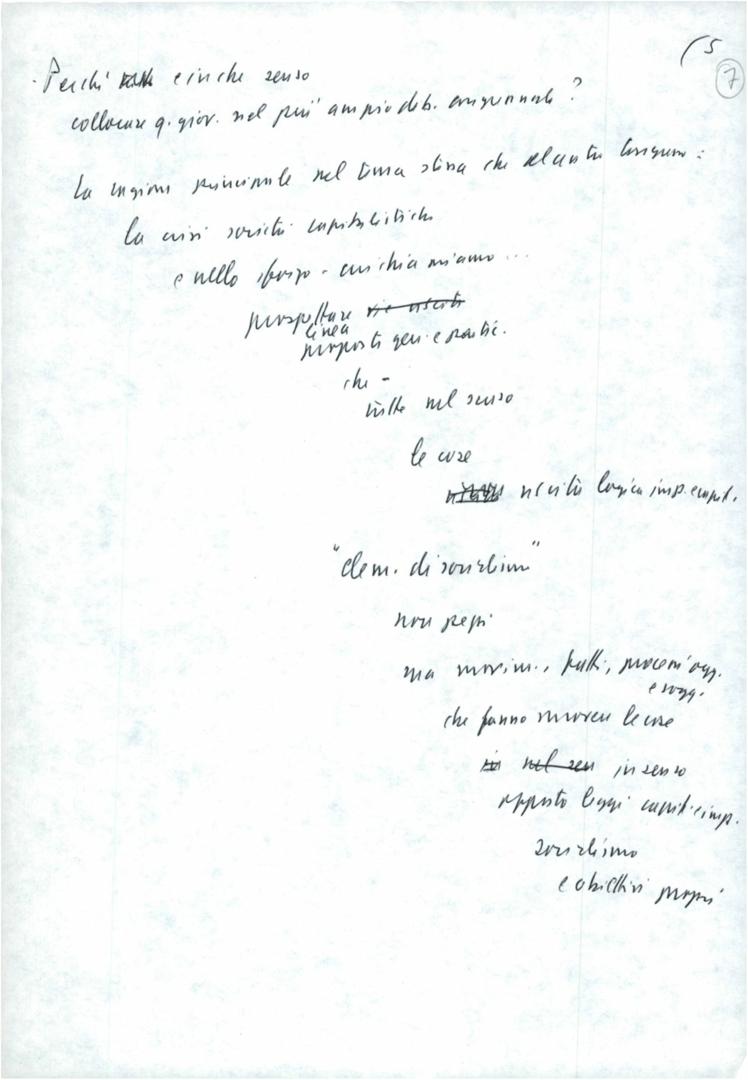 (5
7
Perché e in che senso
collocare q. giov. nel più ampio dib. congressuale?
La ragione principale nel tema stesso che al centro Congresso:
la crisi società capitalistiche
e nello sforzo - cui chiamiamo...
prospettare vie uscita
linea
proposte gen. e partic.
che -
tutte nel senso
le cose
uscita logica imp. e capit.
"elem. di socialismo"
non pezzi
ma movim., fatti, processi ogg.
e sogg.
che fanno muovere le cose
in nel sen in senso
opposto leggi capit. e imp.
socialismo
e obiettivi propri